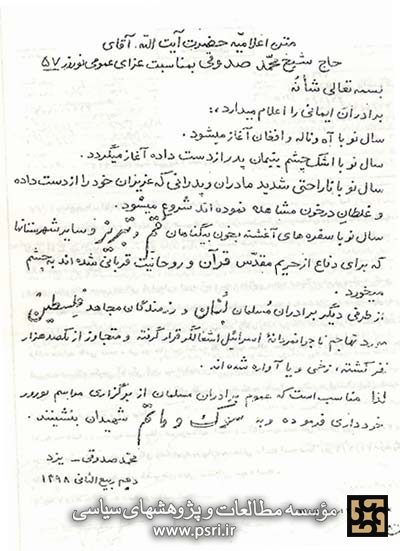 متن اعلامیه حضرت آیت الله آقای
حاج شیخ محمد صدوقی بمناسبت عزای عمومی نوروز ۵۷
بسمه تعالی شأنه
برادران ایمانی را اعلام میدارد،:
سال نو با آه و ناله و افغان آغاز میشود.
سال نو با اشک چشم یتیمان پدر از دست داده آغاز میگردد.
سال نو با ناراحتی شدید مادران و پدرانی که عزیزان خود را از دست داده
و غلطان در خون مشاهده نموده اند شروع میشود.
سال نو با سفره های آغشته بخون بیگناهان قم و تبریز و سایر شهرستانها
که برای دفاع از حریم مقدس قرآن و روحانیت قربانی شده اند بچشم
میخورد.
از طرفی دیگر برادران مسلمان لبنان و رزمندگان مجاهد فلسطین
مورد تهاجم ناجوانمردانهٔ اسرائیل اشغالگر قرار گرفته و متجاوز از یکصد هزار
نفر کشته، زخمی و یا آواره شده اند.
لذا مناسب است که عموم برادران مسلمان از برگزاری مراسم نوروز
خودداری فرموده و به سوگ و ماتم شهیدان بنشینند.
محمد صدوقی - یزد
دهم ربیع الثانی ۱۳۹۸
مؤسسه مطالعات و پژوهشهای سیاسی
www.psri.ir